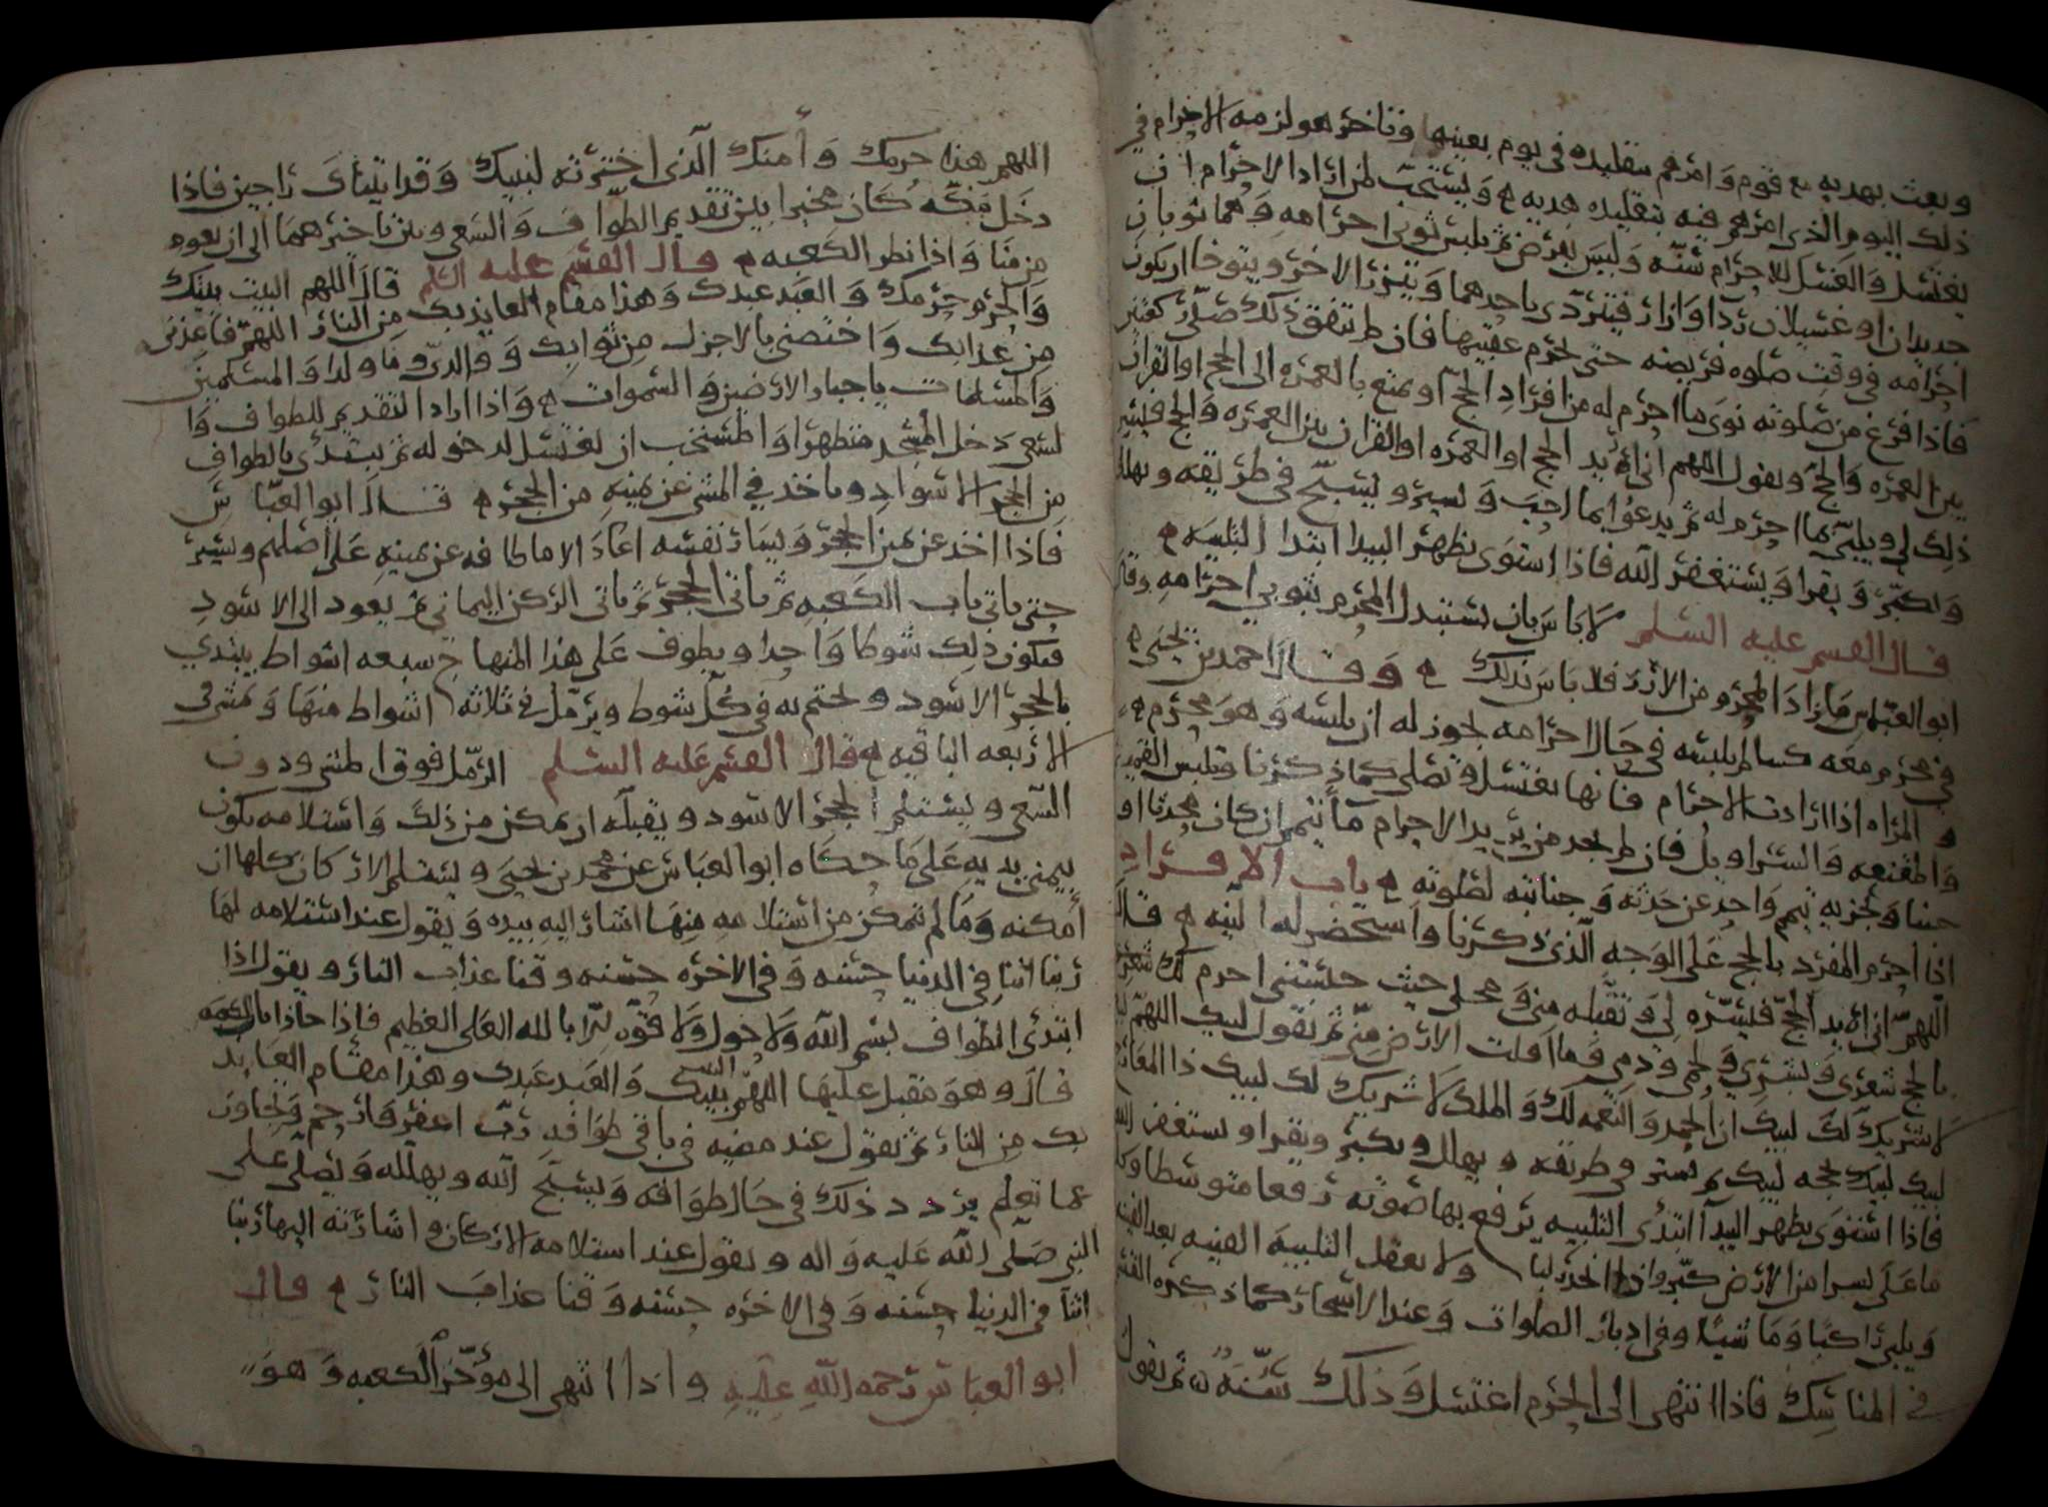 وبعث بهديه مع قوم وامرهم بتقليده في يوم بعينه وتاخر هو لزمه الاحرام في
ذلك اليوم الذي امرهم فيه بتقليد هديه ويستحب لمن اراد الاحرام ان
يغتسل والغسل للاحرام سنه وليس بفرض ثم يلبس ثوبي احرامه وهما ثوبان
جديدان او غسيلان ردآ وازار فيتردى باحدهما ويتزر بالاخر ويتوخا ان يكون
احرامه في وقت صلوه فريضه حتى يحرم عقيبها فان لم يتفق ذلك صلى ركعتين
فاذا فرغ من صلوته نوى ما احرم له من افراد الحج او تمتع بالعمره الى الحج او القران
بين العمره والحج ويقول اللهم اني اريد الحج او العمره او القران بين العمره والحج فيسر
ذلك لي ويلبي بما احرم له ثم يدعو بما احب ويسير ويسبح في طريقه ويهلل
ويكبر ويقرا ويستغفر الله فاذا استوى بظهر البيدا ابتدا التلبيه
قال القسم عليه السلم لا باس بان يستبدل المحرم بثوبي احرامه وقال
ابو العباس ما زاد المحرم من الازر فلا باس بذلك وقال احمد بن يحيى
في محرم معه كسا لم يلبسه في حال احرامه يجوز له ان يلبسه وهو محرم
والمراه اذا ارادت الاحرام فانها تغتسل وتصلي كما ذكرنا وتلبس القميص
والمقنعه والسراويل فان لم يجد من يريد الاحرام مآ تيمم ان كان محدثا او
جنبا ويجزيه تيمم واحد عن حدثه وجنابته لصلوته باب الافراد
اذا احرم المفرد بالحج على الوجه الذي ذكرنا واستحضر له النيه قال
اللهم اني اريد الحج فيسره لي وتقبله مني ومحلي حيث حبستني احرم لك
بالحج شعري وبشري ولحمي ودمي وما اقلت الارض مني ثم يقول لبيك اللهم لبيك
لا شريك لك لبيك ان الحمد والنعمه لك والملك لا شريك لك لبيك ذا المعارج
لبيك لبيك بحجه لبيك ثم يسير في طريقه ويهلل ويكبر ويقرا ويستغفر الله
فاذا استوى بظهر البيدآ ابتدى التلبيه يرفع بها صوته رفعا متوسطا وكل
ما على نشزا من الارض كبر واذا انحدر لبا ولا يغفل التلبيه الفينه بعد الفينه
ويلبي راكبا وماشيا وفي ادبار الصلوات وعند الاسحار كما ذكره القسم
في المناسك فاذا انتهى الى الحرم اغتسل وذلك سنه ثم يقول
اللهم هذا حرمك وأمنك الذي اخترته لنبيك وقد اتيناك راجين فاذا
دخل مكه كان مخيرا بين تقديم الطواف والسعي وبين تاخيرهما الى ان يعود
من منا واذا نظر الكعبه قال القسم عليه السلم قال اللهم البيت بيتك
والحرم حرمك والعبد عبدك وهذا مقام العايذ بك من النار اللهم فاعذني
من عذابك واختصني بالاجزل من ثوابك ووالدي وما ولدا والمسلمين
والمسلمات يا جبار الارضين والسموات واذا اراد التقديم للطواف وا
لسعي دخل المسجد متطهرا والمستحب ان يغتسل لدخوله ثم يبتدى بالطواف
من الحجر الاسود وياخذ في المشي عن يمينه من الحجر قال ابو العباس
فاذا اخذ عن يمين الحجر ويسار نفسه اعاد الا ما طافه عن يمينه على اصلهم ويسير
حتى ياتي باب الكعبه ثم ياتي الحجر ثم ياتي الركن اليماني ثم يعود الى الاسود
فيكون ذلك شوطا واحدا ويطوف على هذا المنهاج سبعه اشواط يبتدي
بالحجر الاسود ويختم به في كل شوط ويرمل في ثلاثه اشواط منها ويمشي في
الاربعه الباقيه قال القسم عليه السلم الرمل فوق المشي ودون
السعي ويستلم الحجر الاسود ويقبله ان يمكن من ذلك واستلامه يكون
بيمنى يديه على ما حكاه ابو العباس عن محمد بن يحيى ويستلم الاركان كلها ان
أمكنه وما لم تمكن من استلامه منها اشار اليه بيده ويقول عند استلامه لها
ربنا اتنا في الدنيا حسنه وفي الاخره حسنه وقنا عذاب النار ويقول اذا
ابتدى الطواف بسم الله ولا حول ولا قوه الا بالله العلي العظيم فاذا حاذا باب الكعبه
قال وهو مقبل عليها اللهم البيت بيتك والعبد عبدك وهذا مقام العايذ
بك من النار ثم يقول عند مضيه في باقي طوافه رب اغفر وارحم وتجاوز
عما تعلم يردد ذلك في حال طوافه ويسبح الله ويهلله ويصلي على
النبي صلى الله عليه واله ويقول عند استلامه الاركان واشارته اليها ربنا
اتنا في الدنيا حسنه وفي الاخره حسنه وقنا عذاب النار قال
ابو العباس رحمه الله عليه واذا انتهى الى مؤخر الكعبه وهو